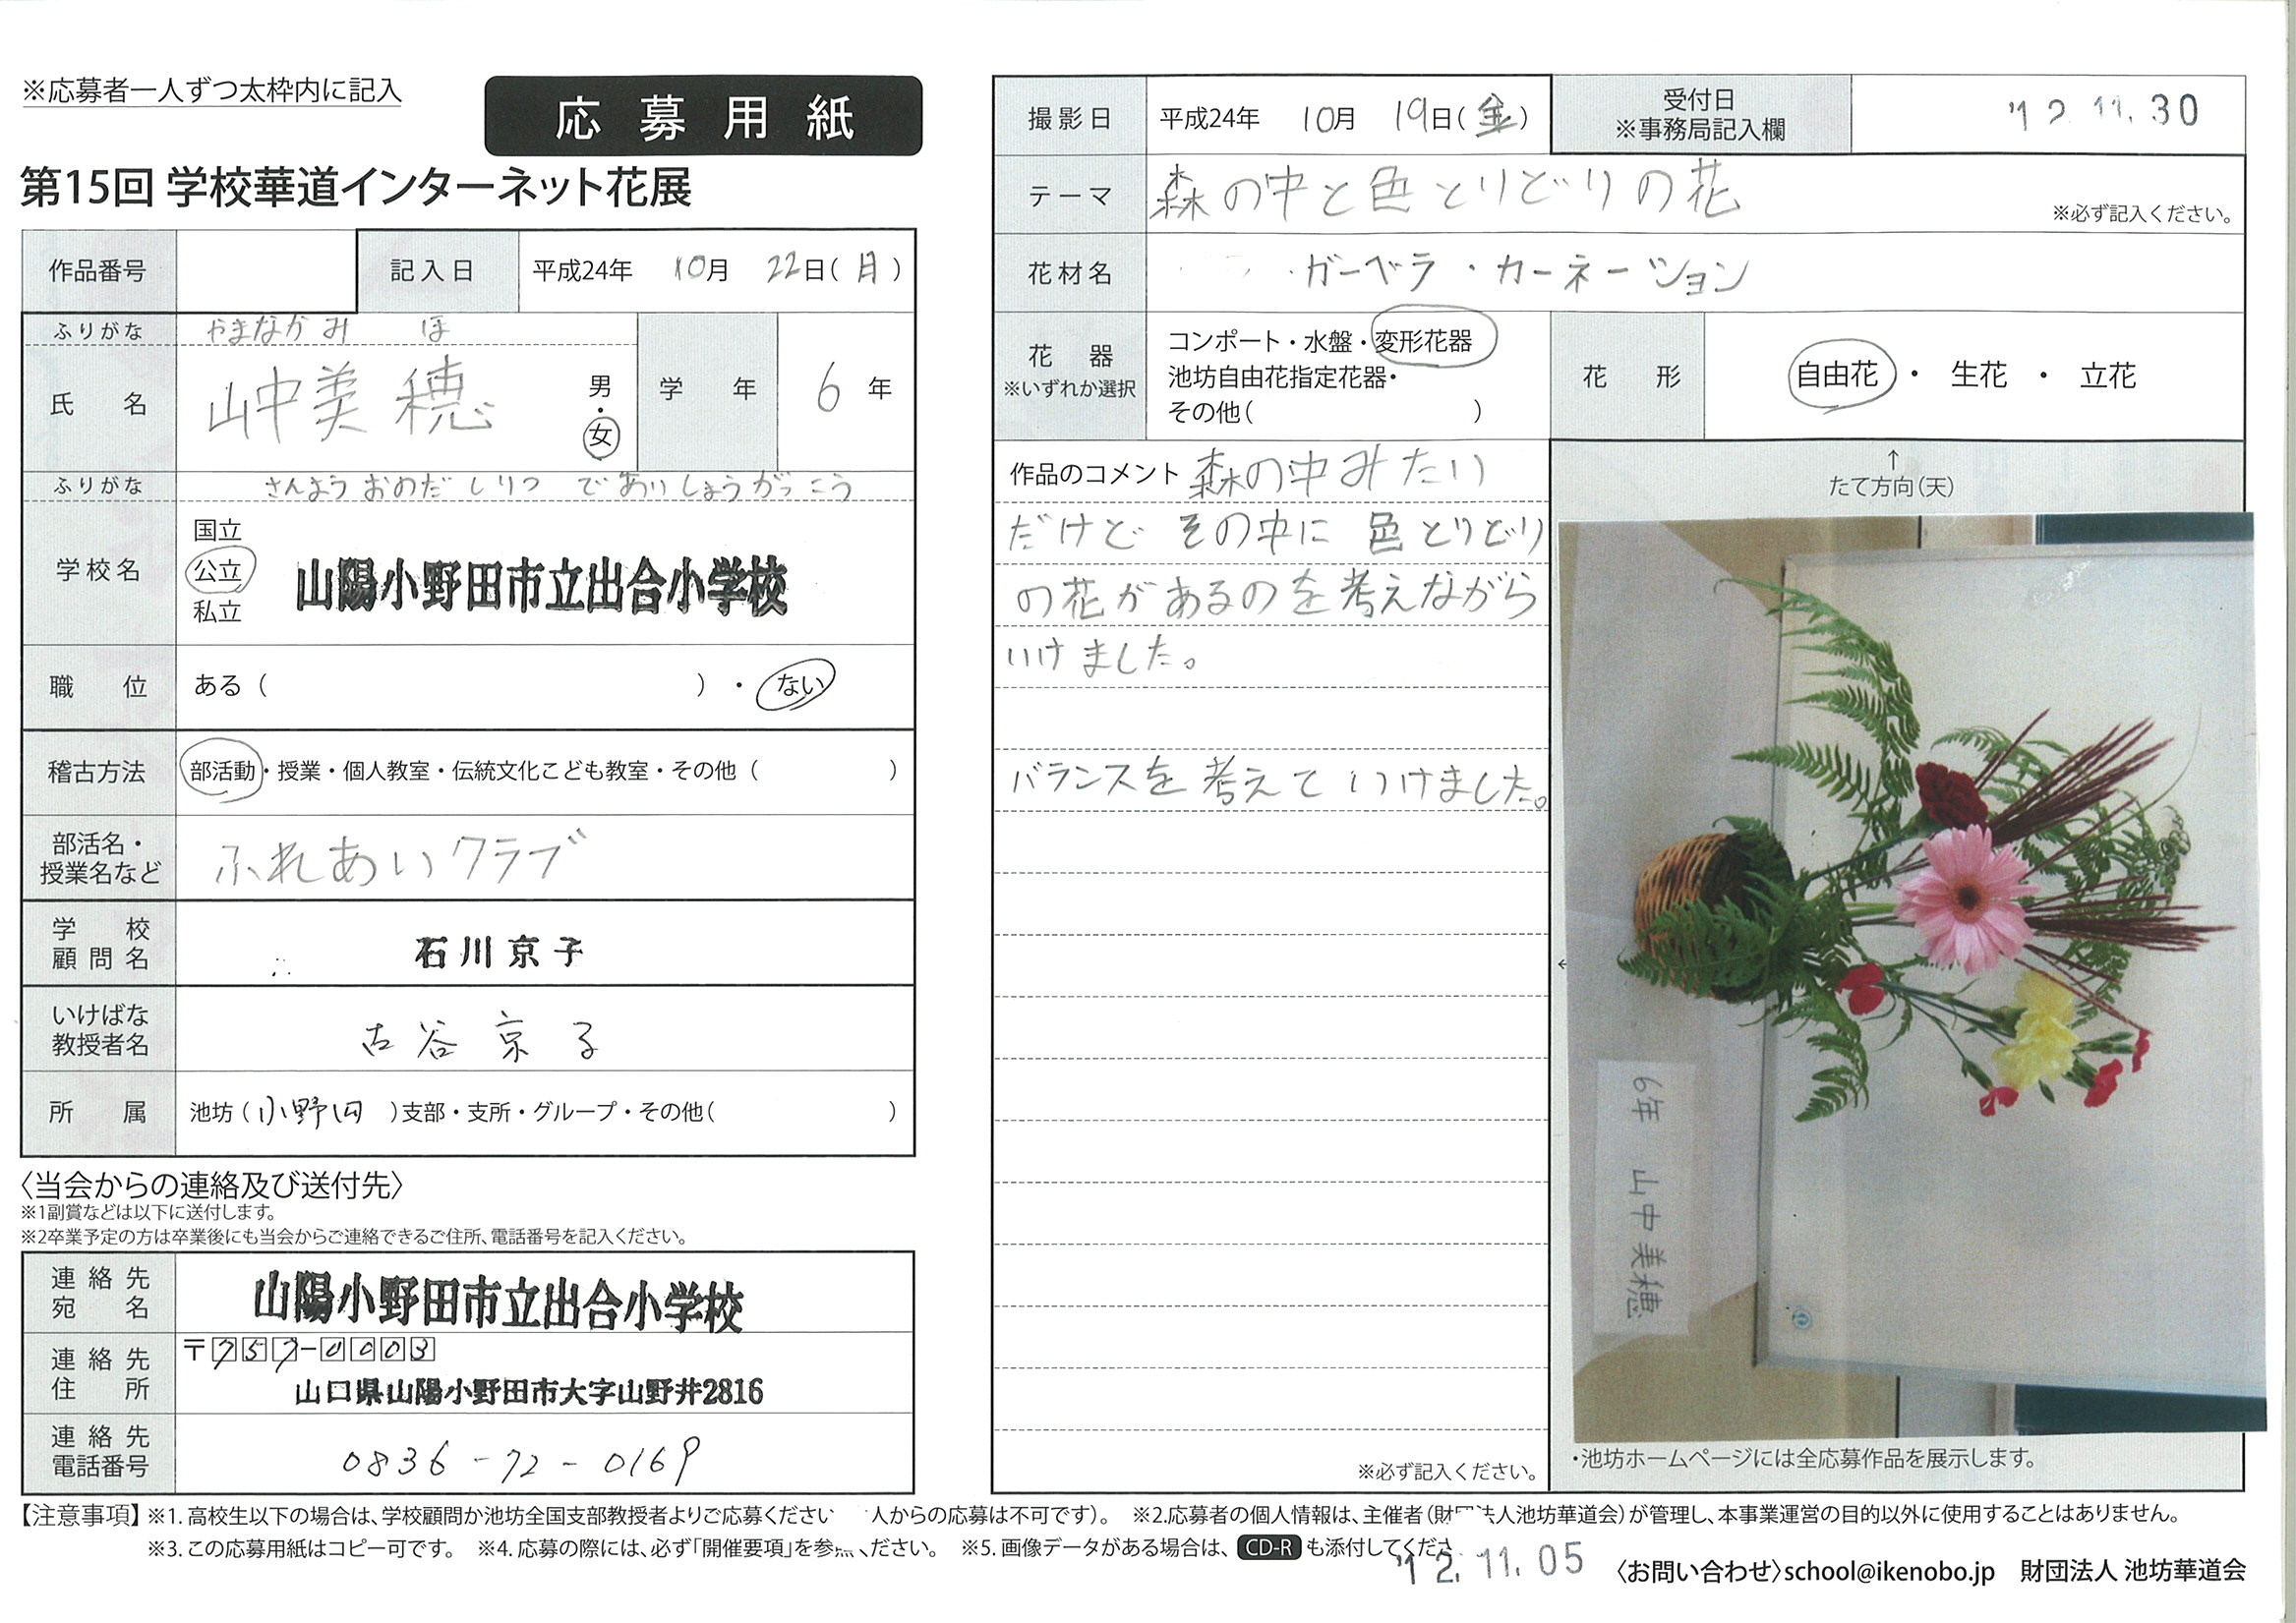 ※応募者一人ずつ太枠内に記入
応募用紙
第15回 学校華道インターネット花展
作品番号
記入日 平成24年 10月 22日(月)
ふりがな やまなか み ほ
氏名 山中美穂 男・女
学年 6年
ふりがな さんようおのだしりつ であいしょうがっこう
学校名 国立 公立 私立 山陽小野田市立出合小学校
職位 ある( )・ない
稽古方法 部活動・授業・個人教室・伝統文化こども教室・その他( )
部活名・授業名など ふれあいクラブ
学校顧問名 石川京子
いけばな教授者名 古谷京子
所属 池坊(小野田)支部・支所・グループ・その他( )
〈当会からの連絡及び送付先〉
※1副賞などは以下に送付します。
※2卒業予定の方は卒業後にも当会からご連絡できるご住所、電話番号を記入ください。
連絡先宛名 山陽小野田市立出合小学校
連絡先住所 〒757-0003
山口県山陽小野田市大字山野井2816
連絡先電話番号 0836-72-0169
撮影日 平成24年 10月 19日(金)
受付日 ※事務局記入欄 '12.11.30
テーマ 森の中と色とりどりの花
※必ず記入ください。
花材名 ・ガーベラ・カーネーション
花器 ※いずれか選択
コンポート・水盤・変形花器
池坊自由花指定花器・
その他( )
花形 自由花・生花・立花
作品のコメント 森の中みたい
だけど その中に 色とりどり
の花があるのを考えながら
いけました。
バランスを考えていけました。
※必ず記入ください。
↑
たて方向(天)
←
6年 山中美穂
・池坊ホームページには全応募作品を展示します。
【注意事項】※1. 高校生以下の場合は、学校顧問か池坊全国支部教授者よりご応募ください 人からの応募は不可です)。 ※2.応募者の個人情報は、主催者(財団法人池坊華道会)が管理し、本事業運営の目的以外に使用することはありません。
※3. この応募用紙はコピー可です。 ※4. 応募の際には、必ず「開催要項」を参 ください。 ※5. 画像データがある場合は、 CD-R も添付してくださ
'12.11.05
〈お問い合わせ〉school@ikenobo.jp 財団法人 池坊華道会